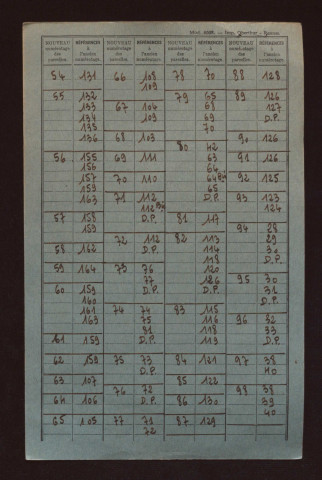 NOUVEAU numérotage des parcelles. RÉFÉRENCES à l'ancien numérotage. NOUVEAU numérotage des parcelles. RÉFÉRENCES à l'ancien numérotage. NOUVEAU numérotage des parcelles. RÉFÉRENCES à l'ancien numérotage. NOUVEAU numérotage des parcelles. RÉFÉRENCES à l'ancien numérotage.
54 131 66 108 78 70 88 128
109
55 132 79 65 89 126
133 67 104 68 127
134 103 69 D.P.
135 70
136 68 103 90 126
80 42
56 155 69 111 63 91 126
156 64
157 70 110 64 bis 92 125
159 65
163 71 112 D.P. 93 123
112 bis 124
57 158 D.P. 81 117
159 94 28
72 112 82 113 29
58 162 D.P. 114 30
118 D.P.
59 164 73 76 120
77 126 95 30
60 159 D.P. D.P. 31
160 D.P.
161 74 74 83 115
163 75 116 96 32
81 118 33
61 159 D.P. 119 D.P.
62 159 75 73 84 121 97 38
77 40
63 107 85 122
76 72 98 38
64 106 D.P. 86 130 39
40
65 105 77 71 87 129
72